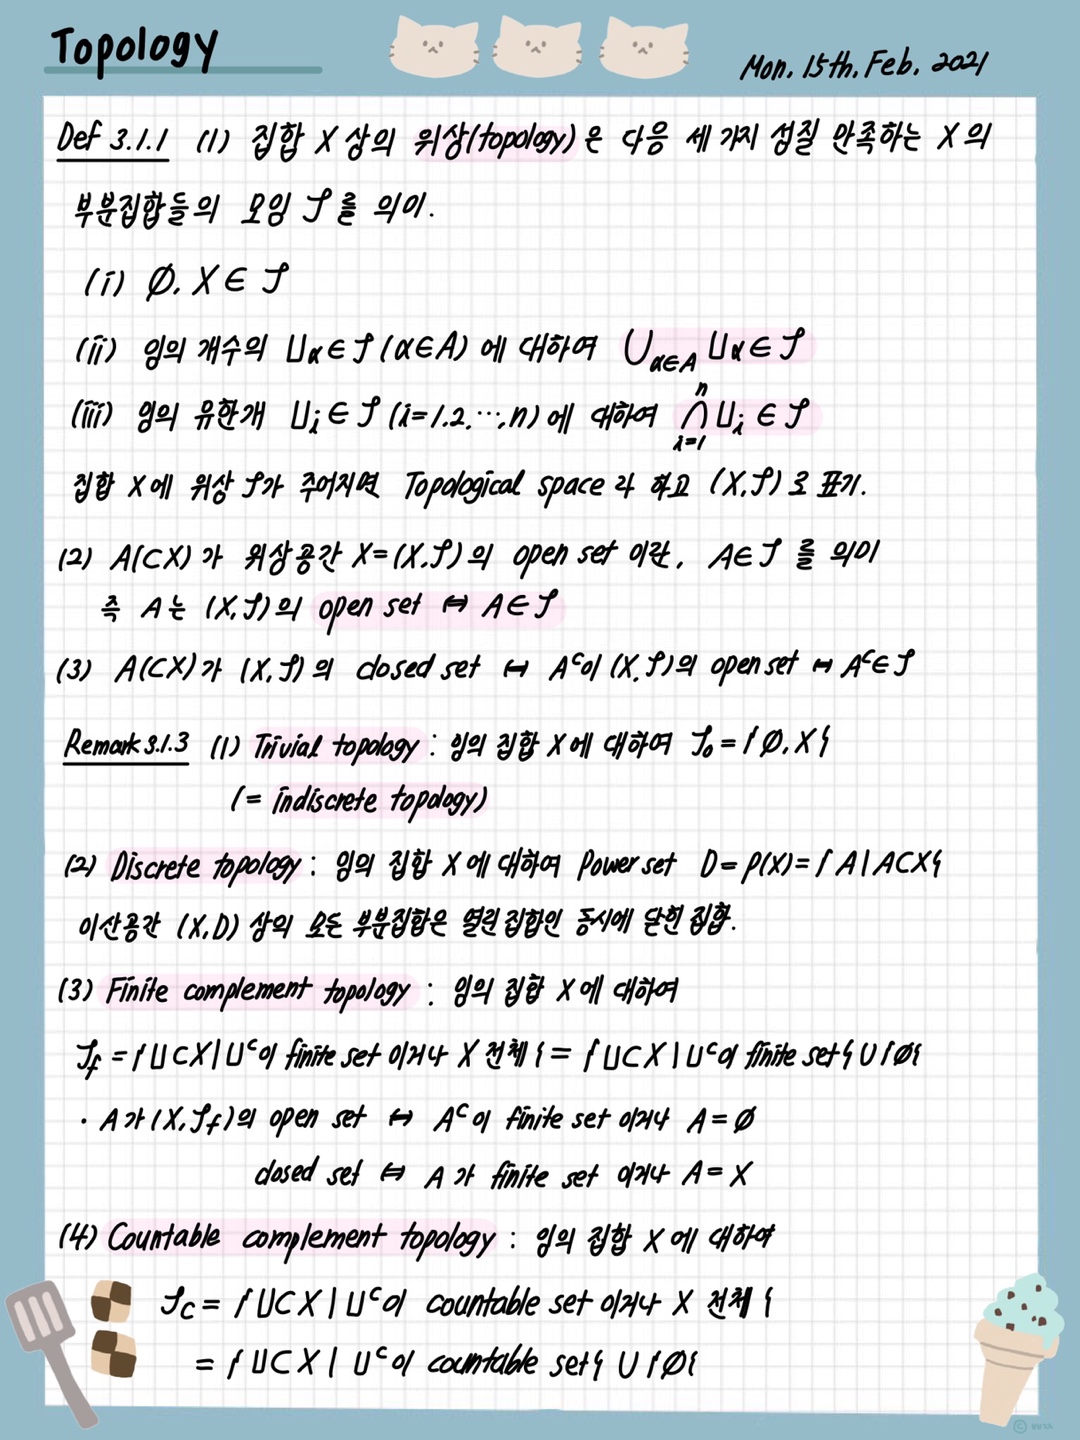 Topology
Mon. 15th. Feb. 2021
Def 3.1.1 (1) 집합 X 상의 위상(topology)은 다음 세 가지 성질 만족하는 X의
부분집합들의 모임 𝒯를 의미.
(i) ∅, X ∈ 𝒯
(ii) 임의 개수의 Uα ∈ 𝒯 (α∈A) 에 대하여 ⋃α∈A Uα ∈ 𝒯
(iii) 임의 유한개 Ui ∈ 𝒯 (i=1.2.⋯,n) 에 대하여 ⋂i=1^n Ui ∈ 𝒯
집합 X에 위상 𝒯가 주어지면 Topological space 라 하고 (X,𝒯)로 표기.
(2) A(⊂X)가 위상공간 X=(X,𝒯)의 open set 이란, A∈𝒯 를 의미
즉 A는 (X,𝒯)의 open set ⇔ A∈𝒯
(3) A(⊂X)가 (X,𝒯)의 closed set ⇔ A^c이 (X,𝒯)의 open set ⇔ A^c∈𝒯
Remark 3.1.3 (1) Trivial topology : 임의 집합 X에 대하여 𝒯₀ = {∅, X}
(= indiscrete topology)
(2) Discrete topology : 임의 집합 X에 대하여 Power set D = P(X) = {A | A⊂X}
이산공간 (X,D) 상의 모든 부분집합은 열린 집합인 동시에 닫힌 집합.
(3) Finite complement topology : 임의 집합 X에 대하여
𝒯f = {U⊂X | U^c이 finite set 이거나 X 전체} = {U⊂X | U^c이 finite set} ∪ {∅}
· A가 (X,𝒯f)의 open set ⇔ A^c이 finite set 이거나 A = ∅
closed set ⇔ A 가 finite set 이거나 A = X
(4) Countable complement topology : 임의 집합 X에 대하여
𝒯c = {U⊂X | U^c이 countable set 이거나 X 전체}
= {U⊂X | U^c이 countable set} ∪ {∅}